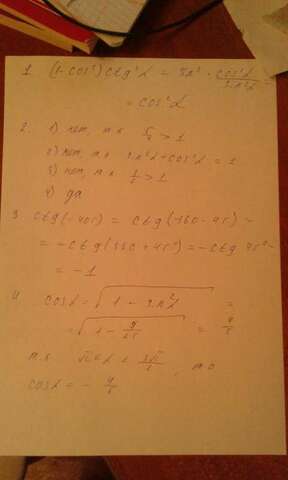 1 (1-cos²)ctg²α = sin² · cos²α / sin²α =
= cos²α
2. 1) нет, т.к. > 1
2) нет, т.к. sin²α + cos²α = 1
3) нет, т.к. > 1
4) да
3 ctg(-405) = ctg(-360-45) =
= -ctg(360+45°) = -ctg 45° =
= -1
4 cosα = √(1 - sin²α) =
= √(1 - 9/25) = 4/5
т.к. , то
cosα = - 4/5